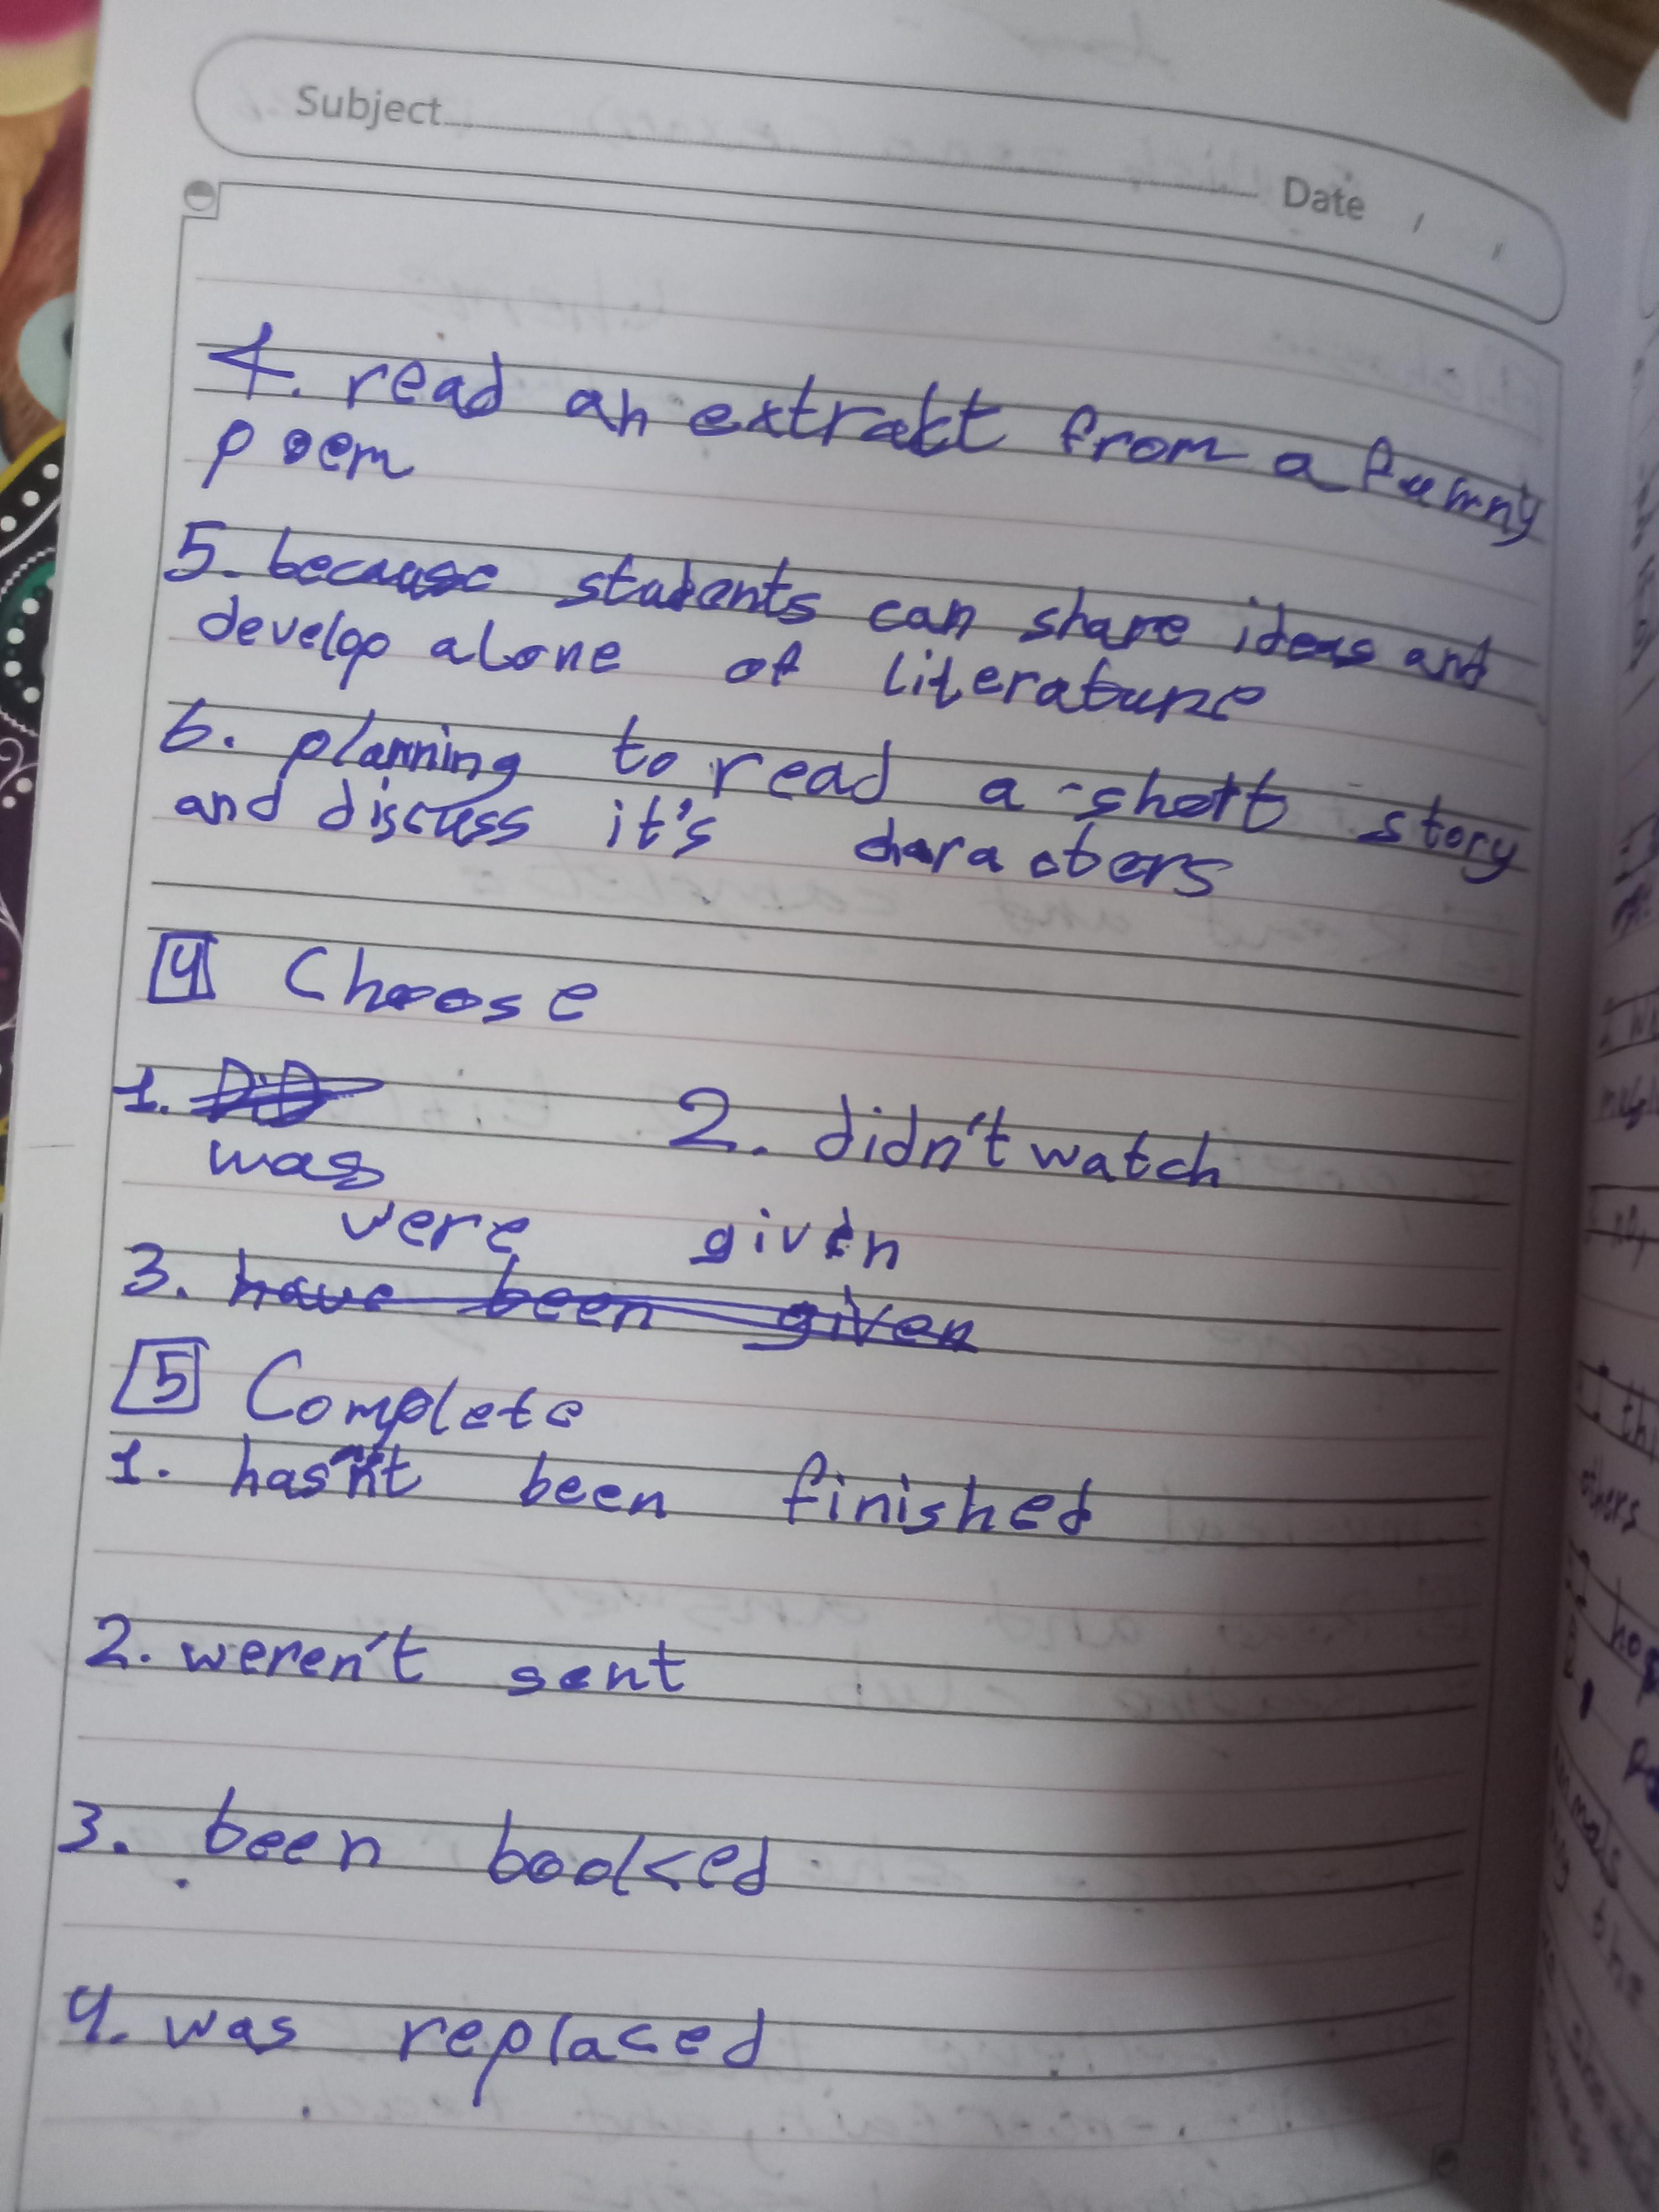 Subject
Date / /
4. read an extrakt from a funny
poem
5. because students can share ideas and
develop alone of literature
6. planning to read a short story
and discuss it's characters
4 Choose
1. 2. didn't watch
was
were given
3. have been given
5 Complete
1. hasn't been finished
2. weren't sent
3. been booked
4. was replaced